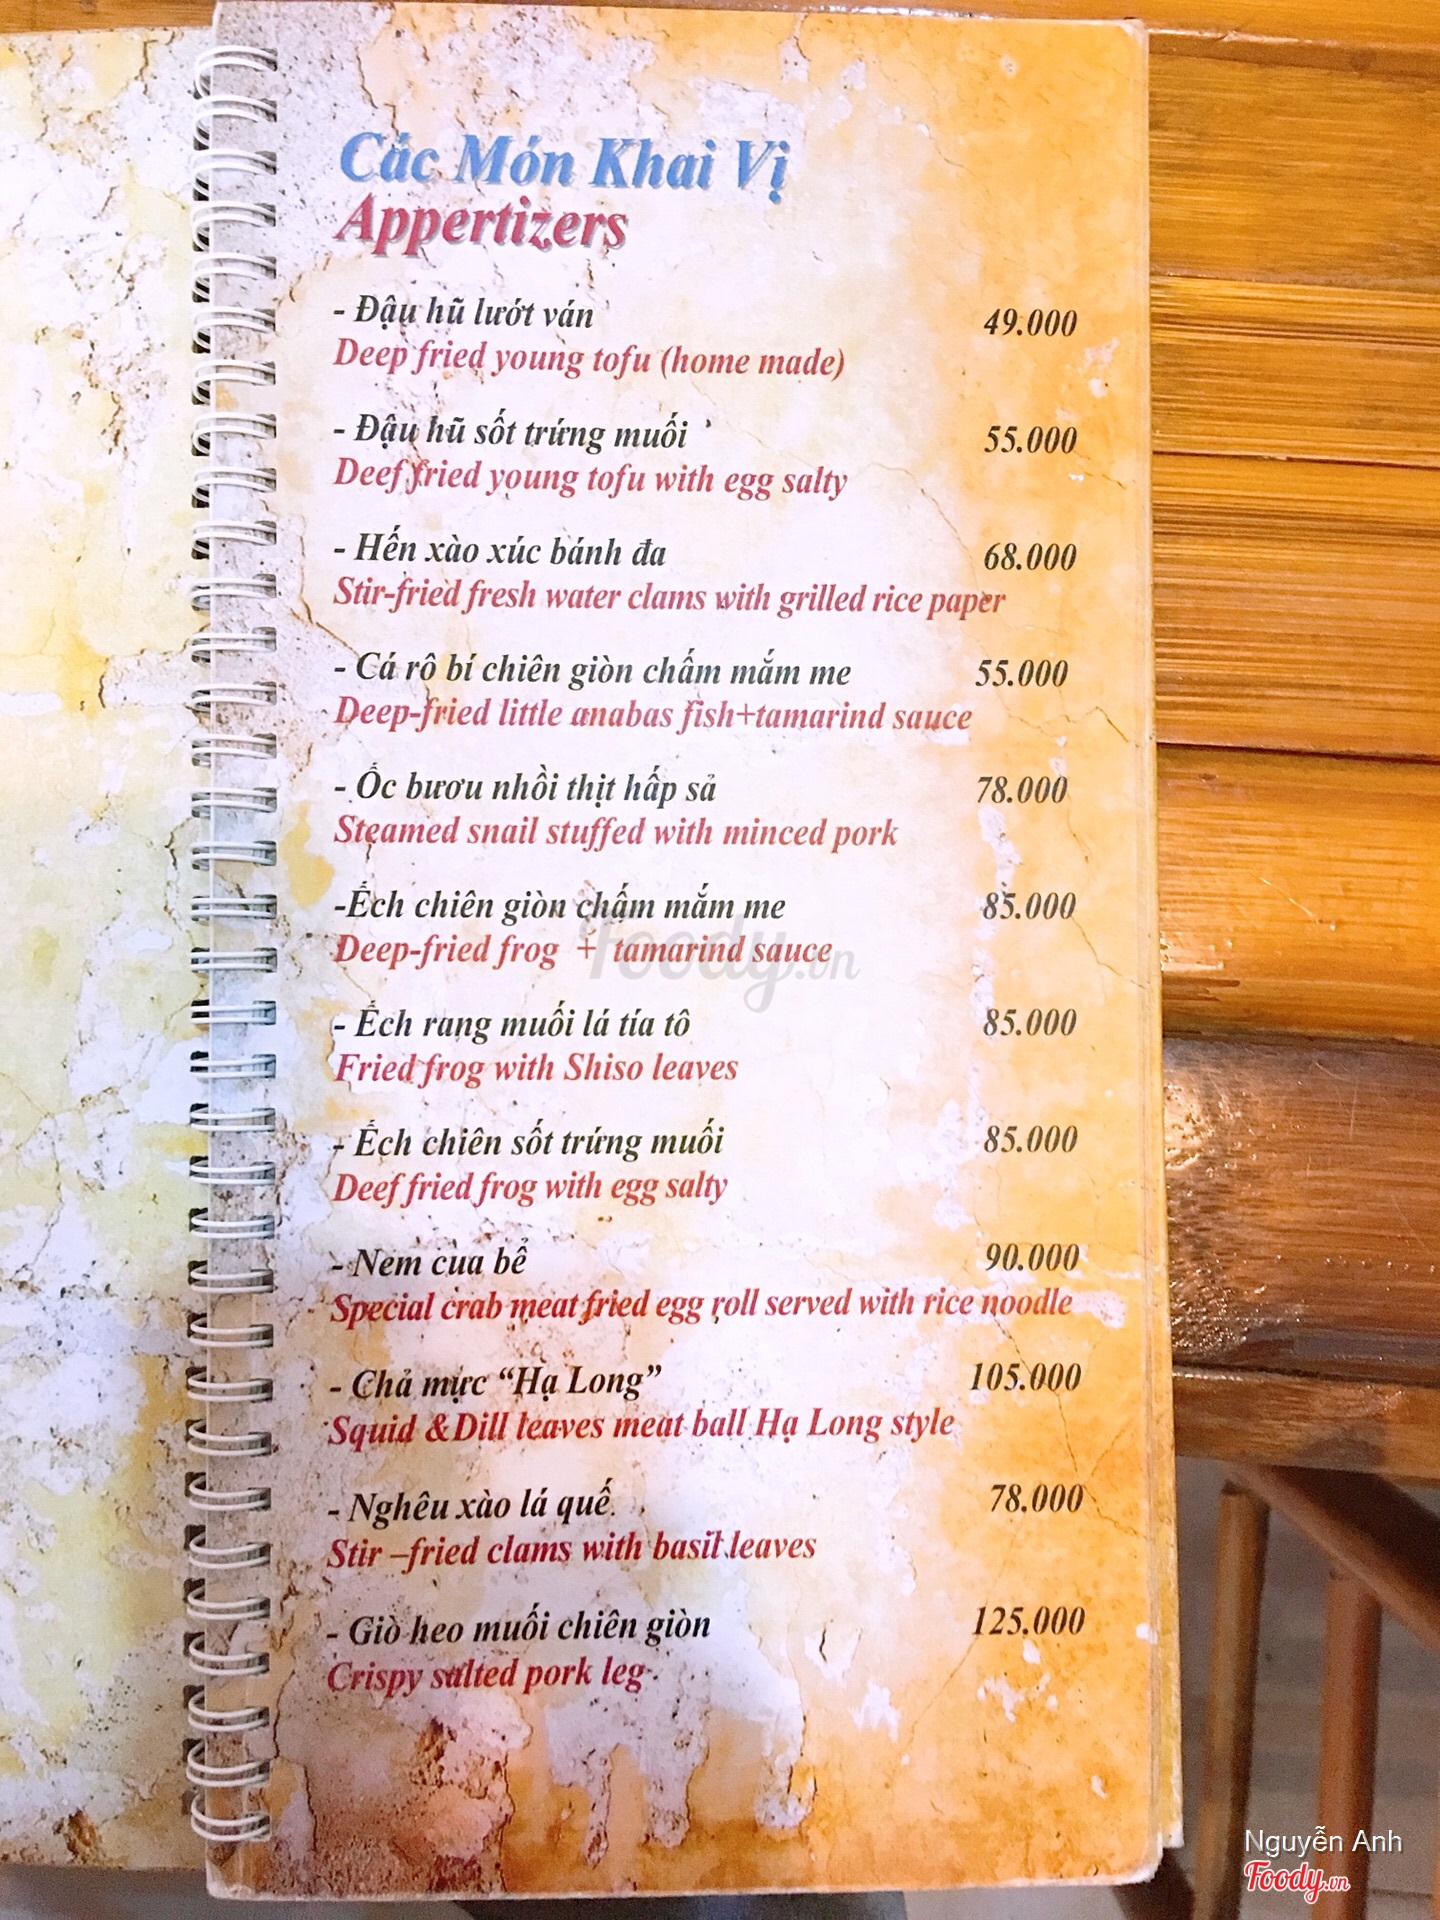 Các Món Khai Vị
Appertizers
- Đậu hũ lướt ván 49.000
Deep fried young tofu (home made)
- Đậu hũ sốt trứng muối 55.000
Deef fried young tofu with egg salty
- Hến xào xúc bánh đa 68.000
Stir-fried fresh water clams with grilled rice paper
- Cá rô bí chiên giòn chấm mắm me 55.000
Deep-fried little anabas fish+tamarind sauce
- Ốc bươu nhồi thịt hấp sả 78.000
Steamed snail stuffed with minced pork
-Ếch chiên giòn chấm mắm me 85.000
Deep-fried frog + tamarind sauce
Foody.vn
- Ếch rang muối lá tía tô 85.000
Fried frog with Shiso leaves
- Ếch chiên sốt trứng muối 85.000
Deef fried frog with egg salty
- Nem cua bể 90.000
Special crab meat fried egg roll served with rice noodle
- Chả mực “Hạ Long” 105.000
Squid &Dill leaves meat ball Hạ Long style
- Nghêu xào lá quế 78.000
Stir –fried clams with basil leaves
- Giò heo muối chiên giòn 125.000
Crispy salted pork leg
Nguyễn Anh
Foody.vn